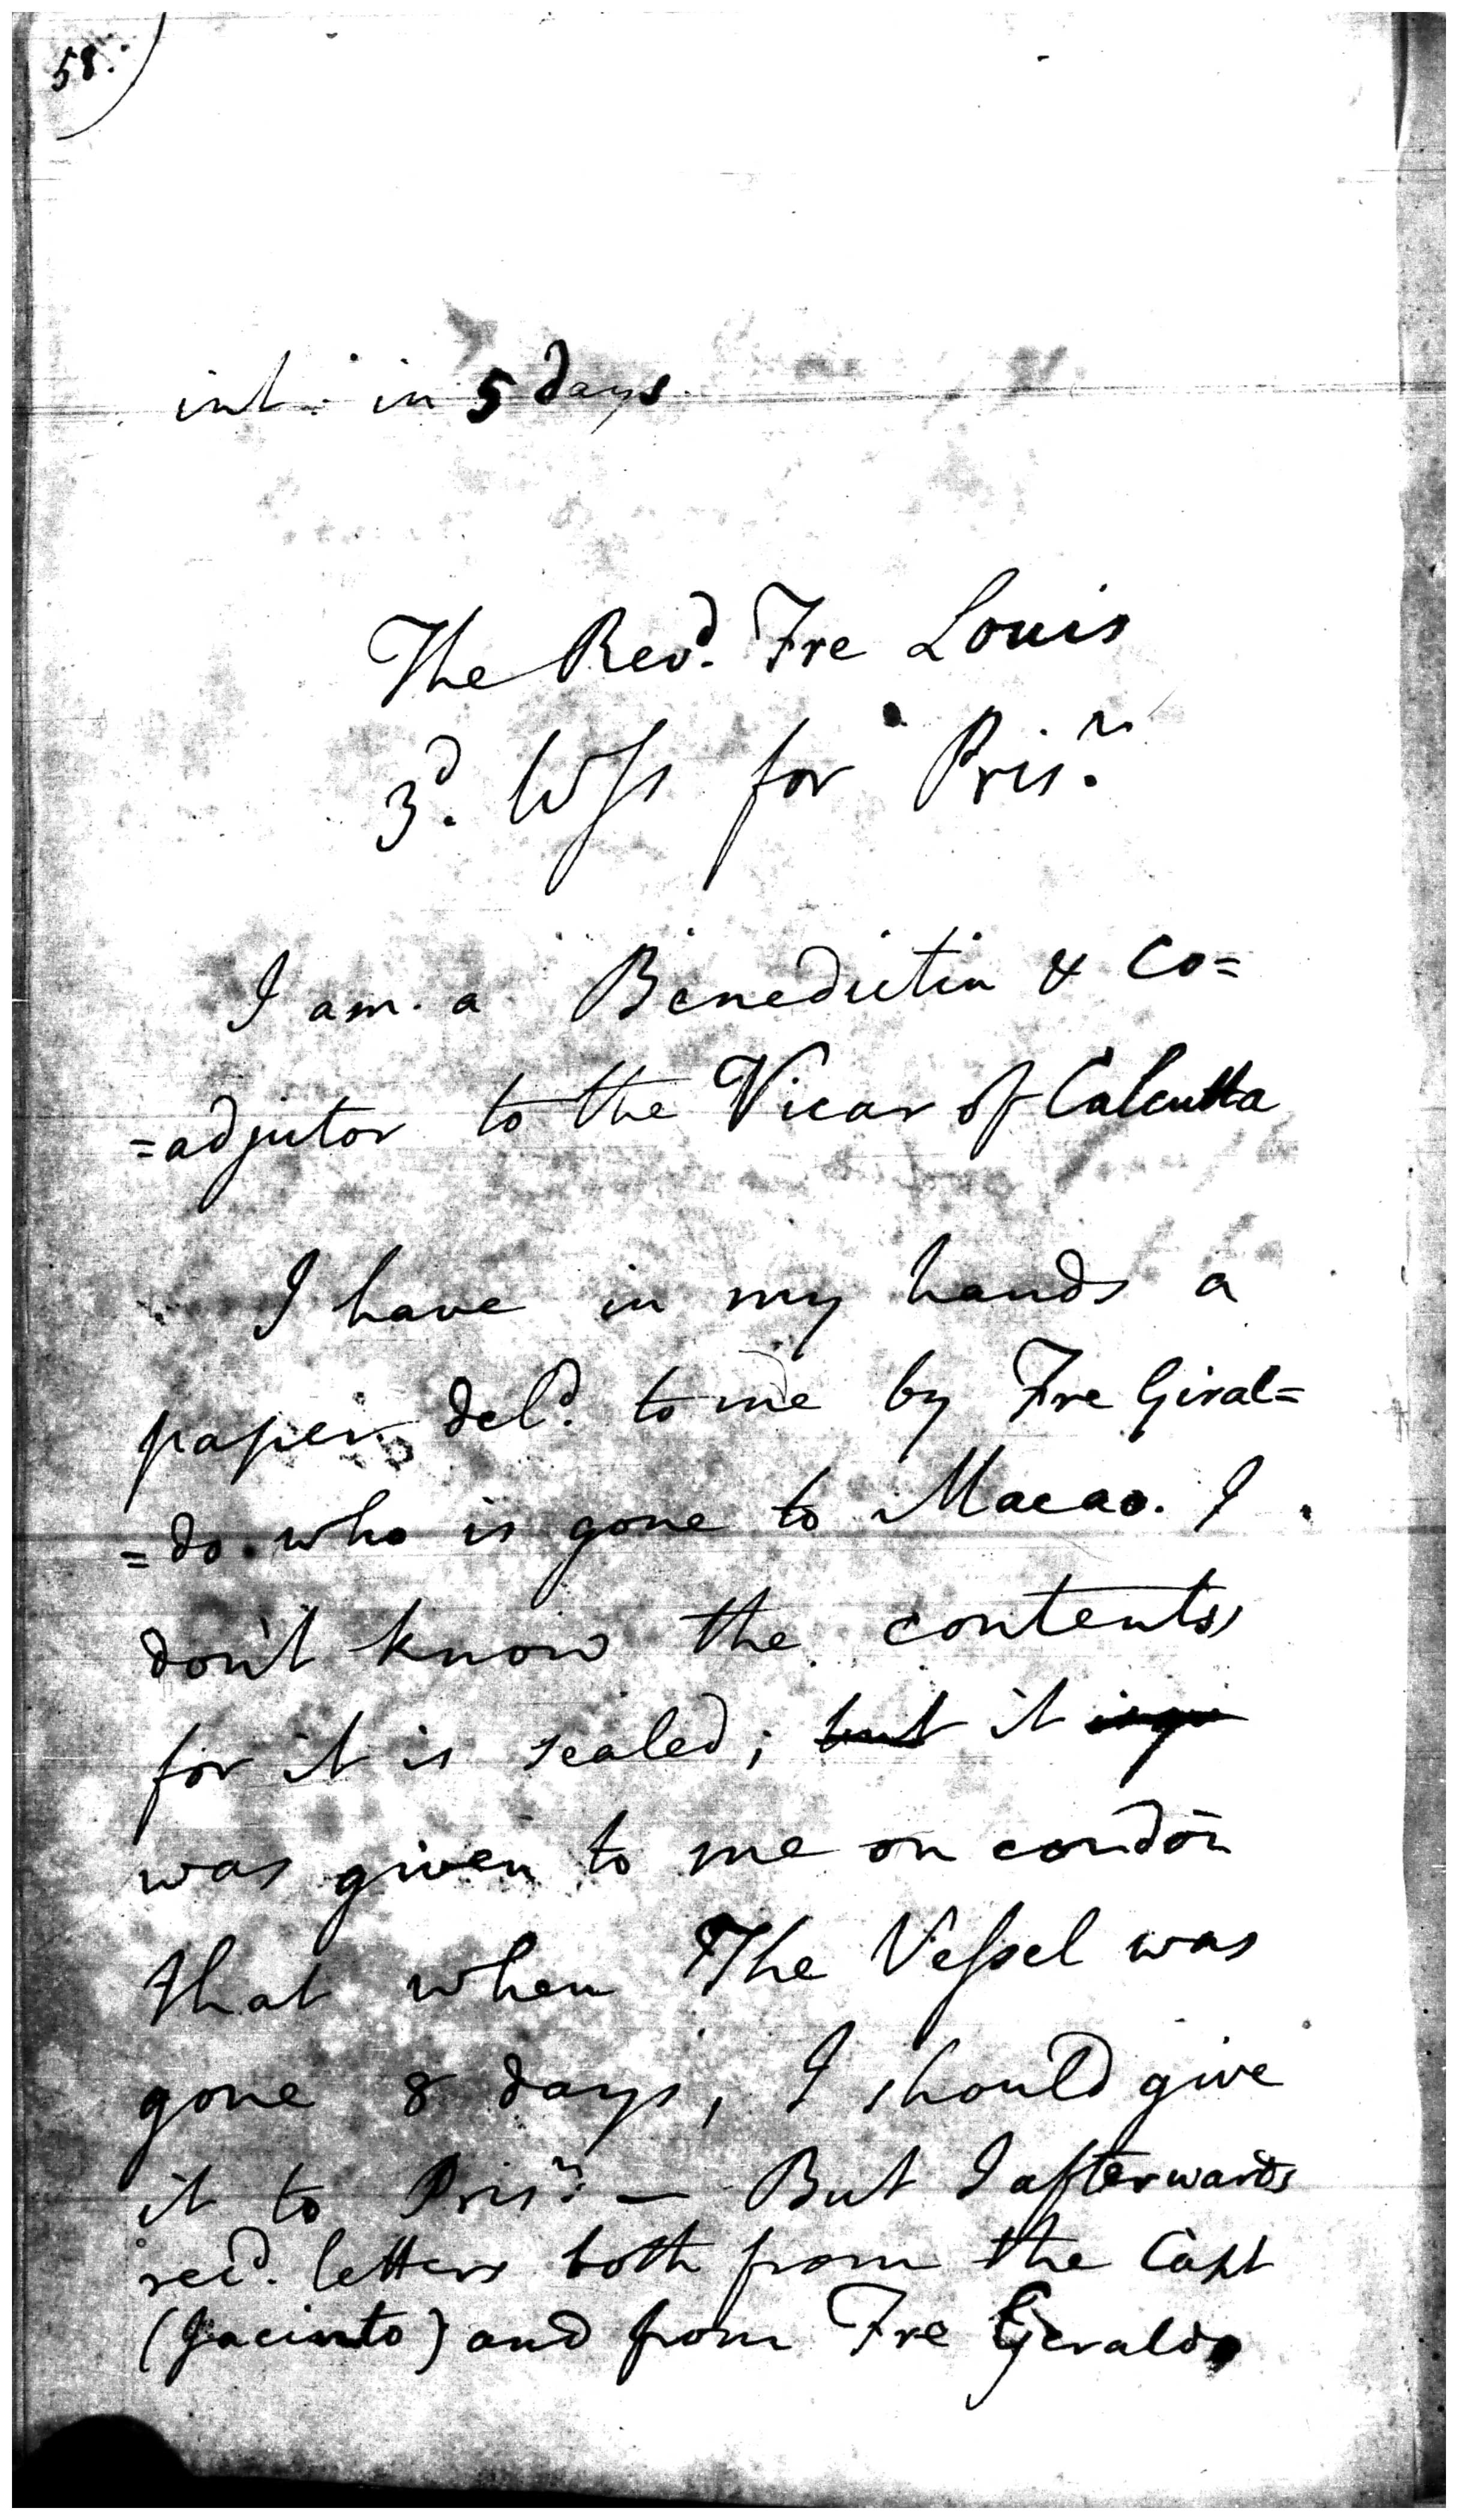 58.
int. in 5 days
The Rev.d Fre Louis
3.d Wss for Pris.r
I am a Benedictin & Co=
=adjutor to the Vicar of Calcutta
I have in my hands a
paper del.d to me by Fre Giral=
=do who is gone to Macao. I
don't know the contents,
for it is sealed; but it is gi
was given to me on condōn
that when The Vessel was
gone 8 days, I should give
it to Pris.r — But I afterwards
rec.d letters both from the Capt
(Jacinto) and from Fre Geraldo